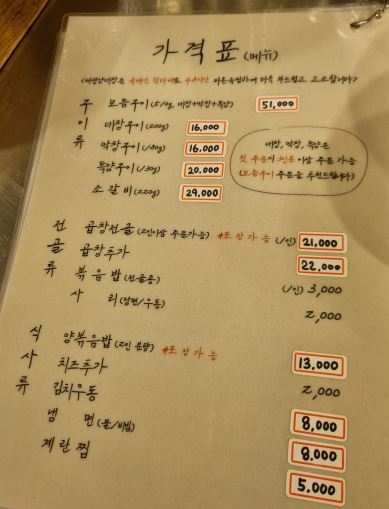 가격표 (메뉴)
모듬구이 (510g, 대창+막창+특양) 51,000
대창구이 (200g) 16,000
막창구이 (180g) 16,000
특양구이 (130g) 20,000
소갈비 (220g) 29,000
구이류
대창, 막창, 특양은
첫 주문시 3인분 이상 주문 가능
(모듬구이 주문을 추천드립니다)
전골류
곱창전골 (2인이상 주문가능) *포장가능 (1인) 21,000
곱창추가 22,000
볶음밥 (전골용) (1인) 3,000
사리 (당면/우동) 2,000
식사류
양볶음밥 (2인 분량) *포장가능 13,000
치즈추가 2,000
김치우동 8,000
냉면 (물/비빔) 8,000
계란찜 5.000